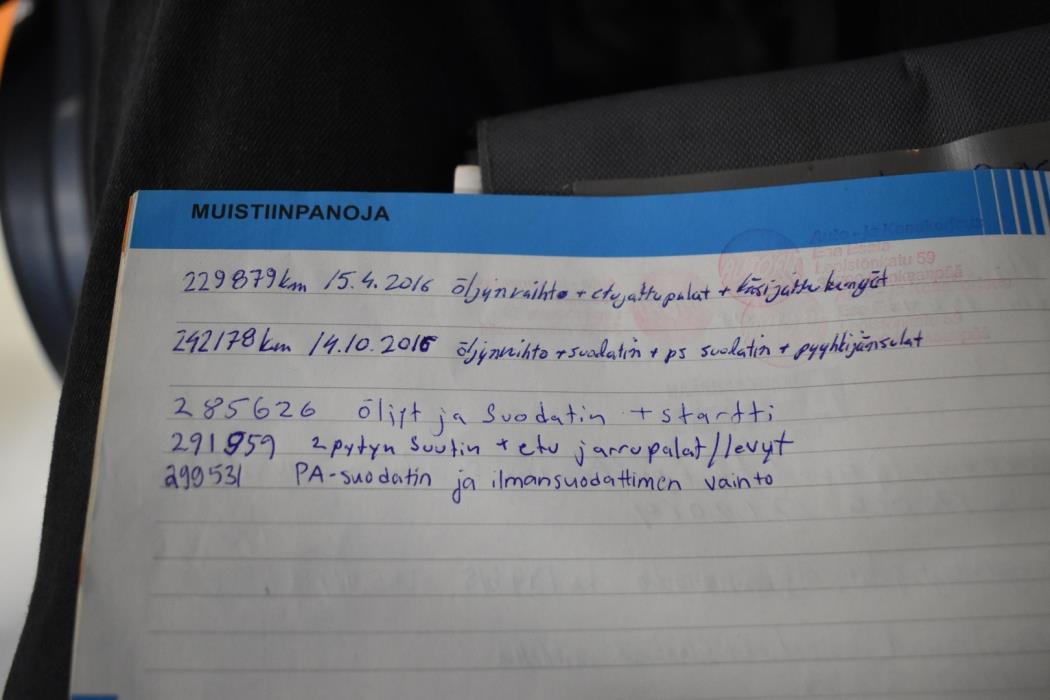 MUISTIINPANOJA
229879km 15.4.2016 öljynvaihto + etujattupalat + käsijattu kengät
242178km 14.10.2016 öljynvaihto + suodatin + ps suodatin + pyyhkijänsulat
285626 öljyt ja suodatin + startti
291959 2 pytyn suutin + etu jarrupalat/levyt
299531 PA-suodatin ja ilmansuodattimen vainto